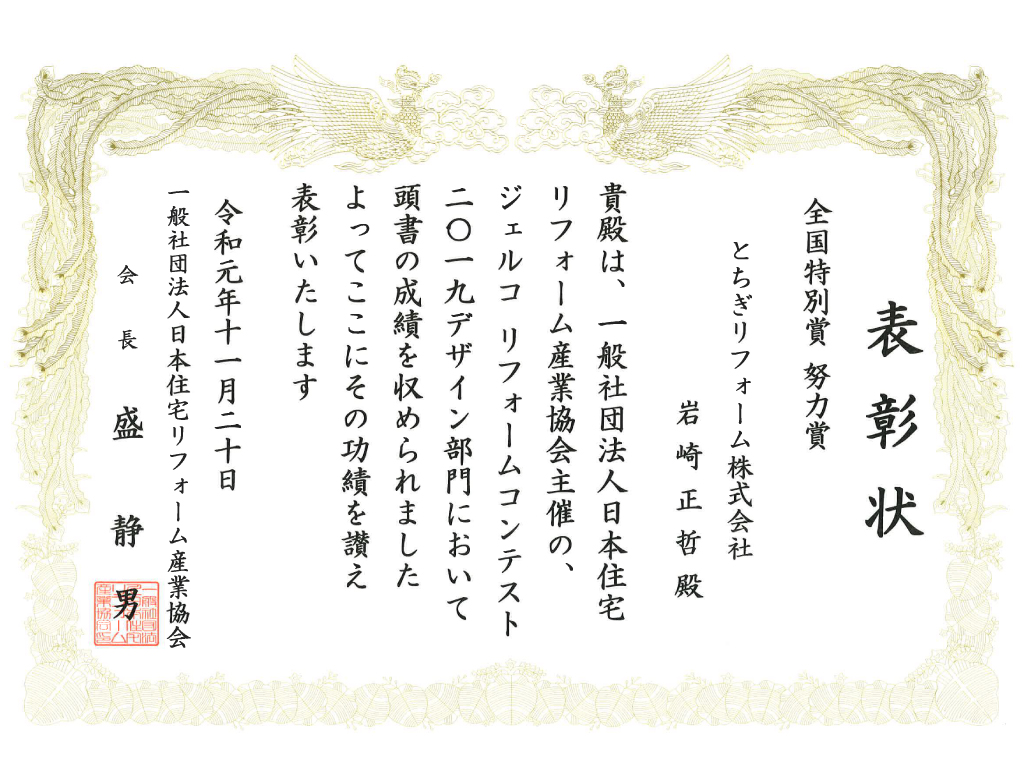 表彰状
全国特別賞 努力賞
とちぎリフォーム株式会社
岩崎正哲殿
貴殿は、一般社団法人日本住宅
リフォーム産業協会主催の、
ジェルコ リフォームコンテスト
二〇一九デザイン部門において
頭書の成績を収められました
よってここにその功績を讃え
表彰いたします
令和元年十一月二十日
一般社団法人日本住宅リフォーム産業協会
会長 盛静男